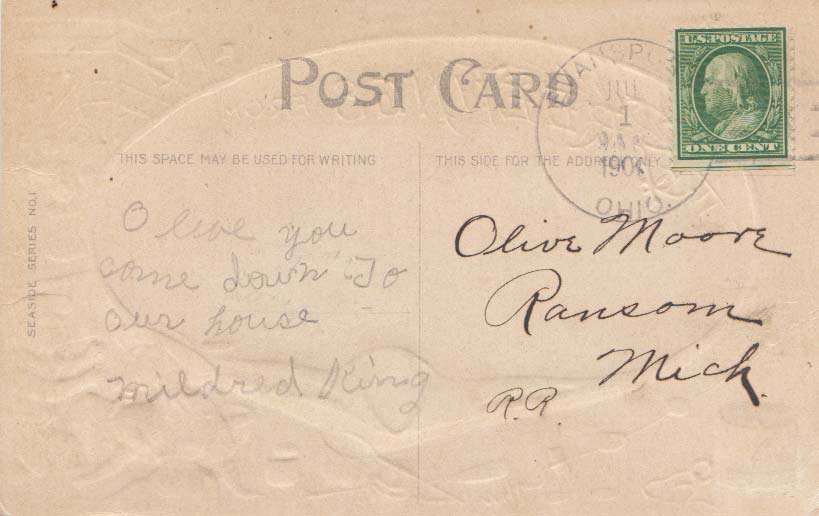 U.S. POSTAGE
ONE CENT
POST CARD
JUL
1
OHIO.
THIS SPACE MAY BE USED FOR WRITING
THIS SIDE FOR THE ADDRESS ONLY
SEASIDE SERIES NO. 1
Olive you
come down To
our house
Mildred King
Olive Moore
Ransom
Mich.
R.R.